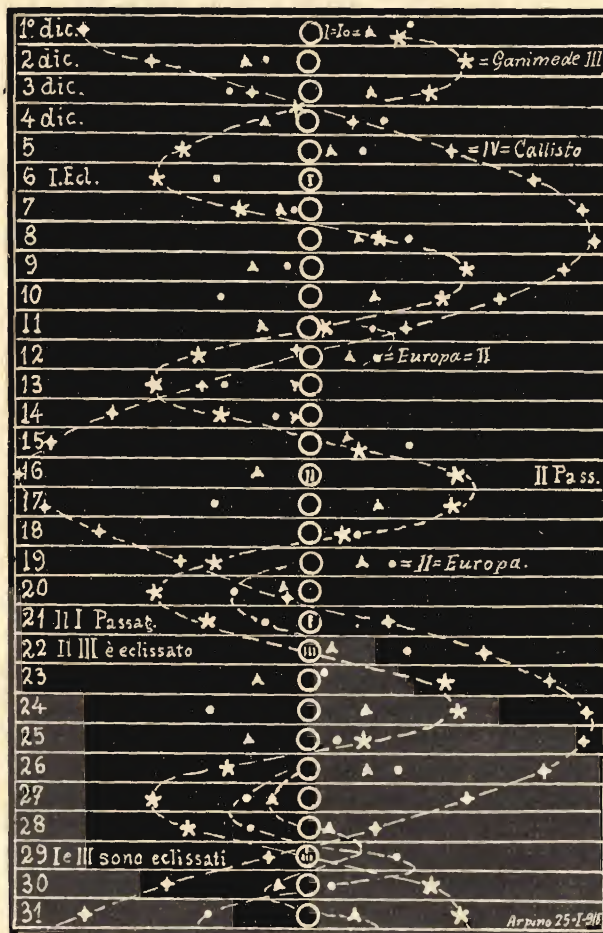 1º dic. I=Io=
2 dic. = Ganimede III
3 dic.
4 dic.
5 = IV = Callisto
6 I. Ecl. I
7
8
9
10
11
12 = Europa = II
13
14
15
16 II II Pass.
17
18
19 = II = Europa.
20
21 Il I Passag. I
22 Il III è eclissato III
23
24
25
26
27
28
29 I e III sono eclissati
30
31 Arpino 25-I-918